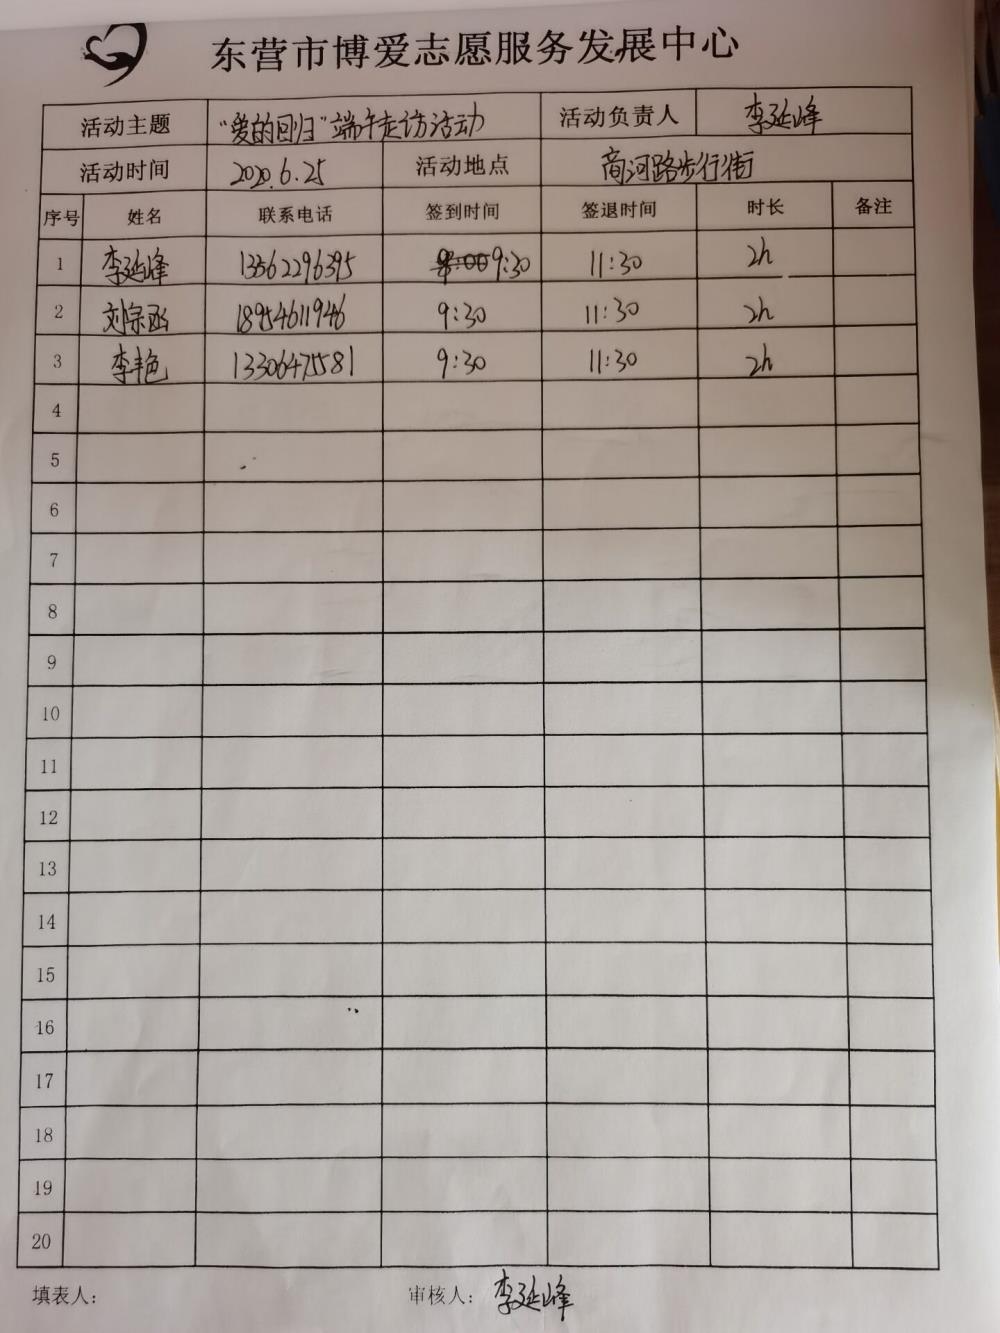 东营市博爱志愿服务发展中心
活动主题 “爱的回归”端午走访活动 活动负责人 李延峰
活动时间 2020.6.25 活动地点 商河路步行街
序号 姓名 联系电话 签到时间 签退时间 时长 备注
1 李延峰 13562296395 9:30 11:30 2h
2 刘宗函 18954611946 9:30 11:30 2h
3 李艳 13306475581 9:30 11:30 2h
4
5
6
7
8
9
10
11
12
13
14
15
16
17
18
19
20
填表人: 审核人: 李延峰